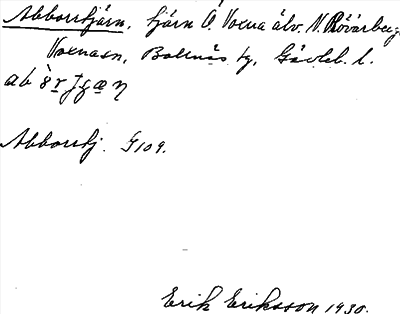 Abborrtjärn, tjärn Ö. Voxna älv. N. Rövarberg,
Voxnasn, Bollnäs tg, Gävleb. l.
Abborrtj. G109.
Erik Eriksson 1930.